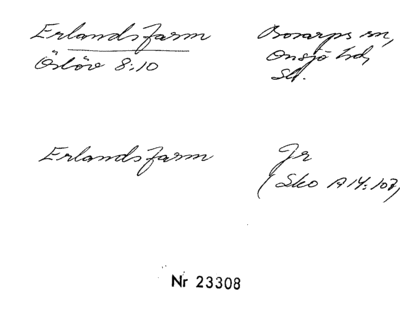 Erlandsfarm
Öslöv 8:10
Bosarps sn,
Onsjö hd,
Sk.
Erlandsfarm
Jr
(Sko A14:107)
Nr 23308